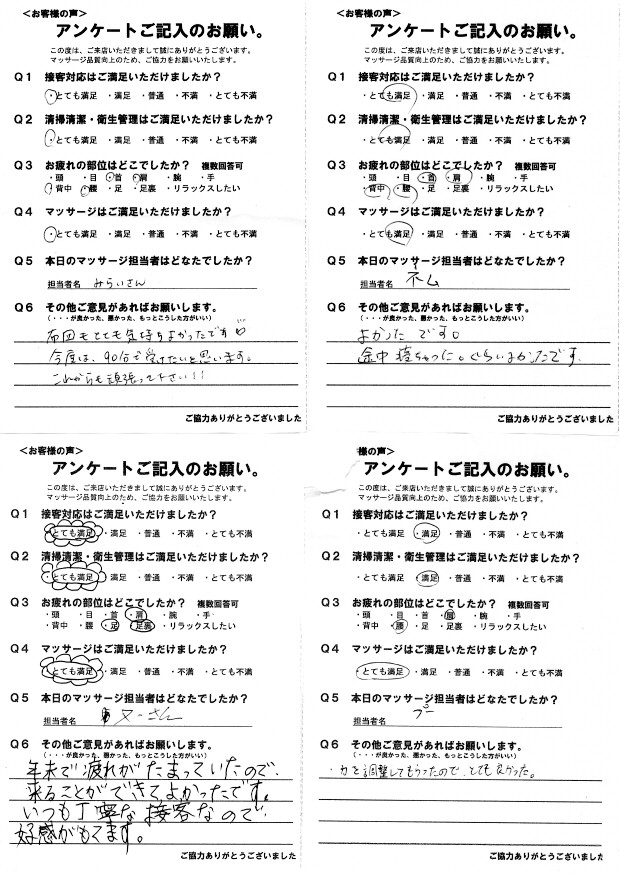 ＜お客様の声＞
アンケートご記入のお願い。
この度は、ご来店いただきまして誠にありがとうございます。
マッサージ品質向上のため、ご協力をお願いいたします。
Q1 接客対応はご満足いただけましたか？
・とても満足 ・満足 ・普通 ・不満 ・とても不満
Q2 清掃清潔・衛生管理はご満足いただけましたか？
・とても満足 ・満足 ・普通 ・不満 ・とても不満
Q3 お疲れの部位はどこでしたか？ 複数回答可
・頭 ・目 ・首 ・肩 ・腕 ・手
・背中 ・腰 ・足 ・足裏 ・リラックスしたい
Q4 マッサージはご満足いただけましたか？
・とても満足 ・満足 ・普通 ・不満 ・とても不満
Q5 本日のマッサージ担当者はどなたでしたか？
担当者名 みらいさん
Q6 その他ご意見があればお願いします。
（・・・が良かった、悪かった、もっとこうした方がいい）
布団もとても気持ちよかったです
今度は、90分で受けたいと思います。
これからも頑張って下さい!!
ご協力ありがとうございました
＜お客様の声＞
アンケートご記入のお願い。
この度は、ご来店いただきまして誠にありがとうございます。
マッサージ品質向上のため、ご協力をお願いいたします。
Q1 接客対応はご満足いただけましたか？
・とても満足 ・満足 ・普通 ・不満 ・とても不満
Q2 清掃清潔・衛生管理はご満足いただけましたか？
・とても満足 ・満足 ・普通 ・不満 ・とても不満
Q3 お疲れの部位はどこでしたか？ 複数回答可
・頭 ・目 ・首 ・肩 ・腕 ・手
・背中 ・腰 ・足 ・足裏 ・リラックスしたい
Q4 マッサージはご満足いただけましたか？
・とても満足 ・満足 ・普通 ・不満 ・とても不満
Q5 本日のマッサージ担当者はどなたでしたか？
担当者名 ネム
Q6 その他ご意見があればお願いします。
（・・・が良かった、悪かった、もっとこうした方がいい）
よかったです。
途中寝ちゃった。ぐらいよかったです。
ご協力ありがとうございました
＜お客様の声＞
アンケートご記入のお願い。
この度は、ご来店いただきまして誠にありがとうございます。
マッサージ品質向上のため、ご協力をお願いいたします。
Q1 接客対応はご満足いただけましたか？
・とても満足 ・満足 ・普通 ・不満 ・とても不満
Q2 清掃清潔・衛生管理はご満足いただけましたか？
・とても満足 ・満足 ・普通 ・不満 ・とても不満
Q3 お疲れの部位はどこでしたか？ 複数回答可
・頭 ・目 ・首 ・肩 ・腕 ・手
・背中 ・腰 ・足 ・足裏 ・リラックスしたい
Q4 マッサージはご満足いただけましたか？
・とても満足 ・満足 ・普通 ・不満 ・とても不満
Q5 本日のマッサージ担当者はどなたでしたか？
担当者名 ヌーさん
Q6 その他ご意見があればお願いします。
（・・・が良かった、悪かった、もっとこうした方がいい）
年末で疲れがたまっていたので、
来ることができてよかったです。
いつも丁寧な接客なので
好感がもてます。
ご協力ありがとうございました
様の声＞
アンケートご記入のお願い。
この度は、ご来店いただきまして誠にありがとうございます。
マッサージ品質向上のため、ご協力をお願いいたします。
Q1 接客対応はご満足いただけましたか？
・とても満足 ・満足 ・普通 ・不満 ・とても不満
Q2 清掃清潔・衛生管理はご満足いただけましたか？
・とても満足 ・満足 ・普通 ・不満 ・とても不満
Q3 お疲れの部位はどこでしたか？ 複数回答可
・頭 ・目 ・首 ・肩 ・腕 ・手
・背中 ・腰 ・足 ・足裏 ・リラックスしたい
Q4 マッサージはご満足いただけましたか？
・とても満足 ・満足 ・普通 ・不満 ・とても不満
Q5 本日のマッサージ担当者はどなたでしたか？
担当者名
Q6 その他ご意見があればお願いします。
（・・・が良かった、悪かった、もっとこうした方がいい）
・力を調整してもらったので、とても良かった。
ご協力ありがとうございました